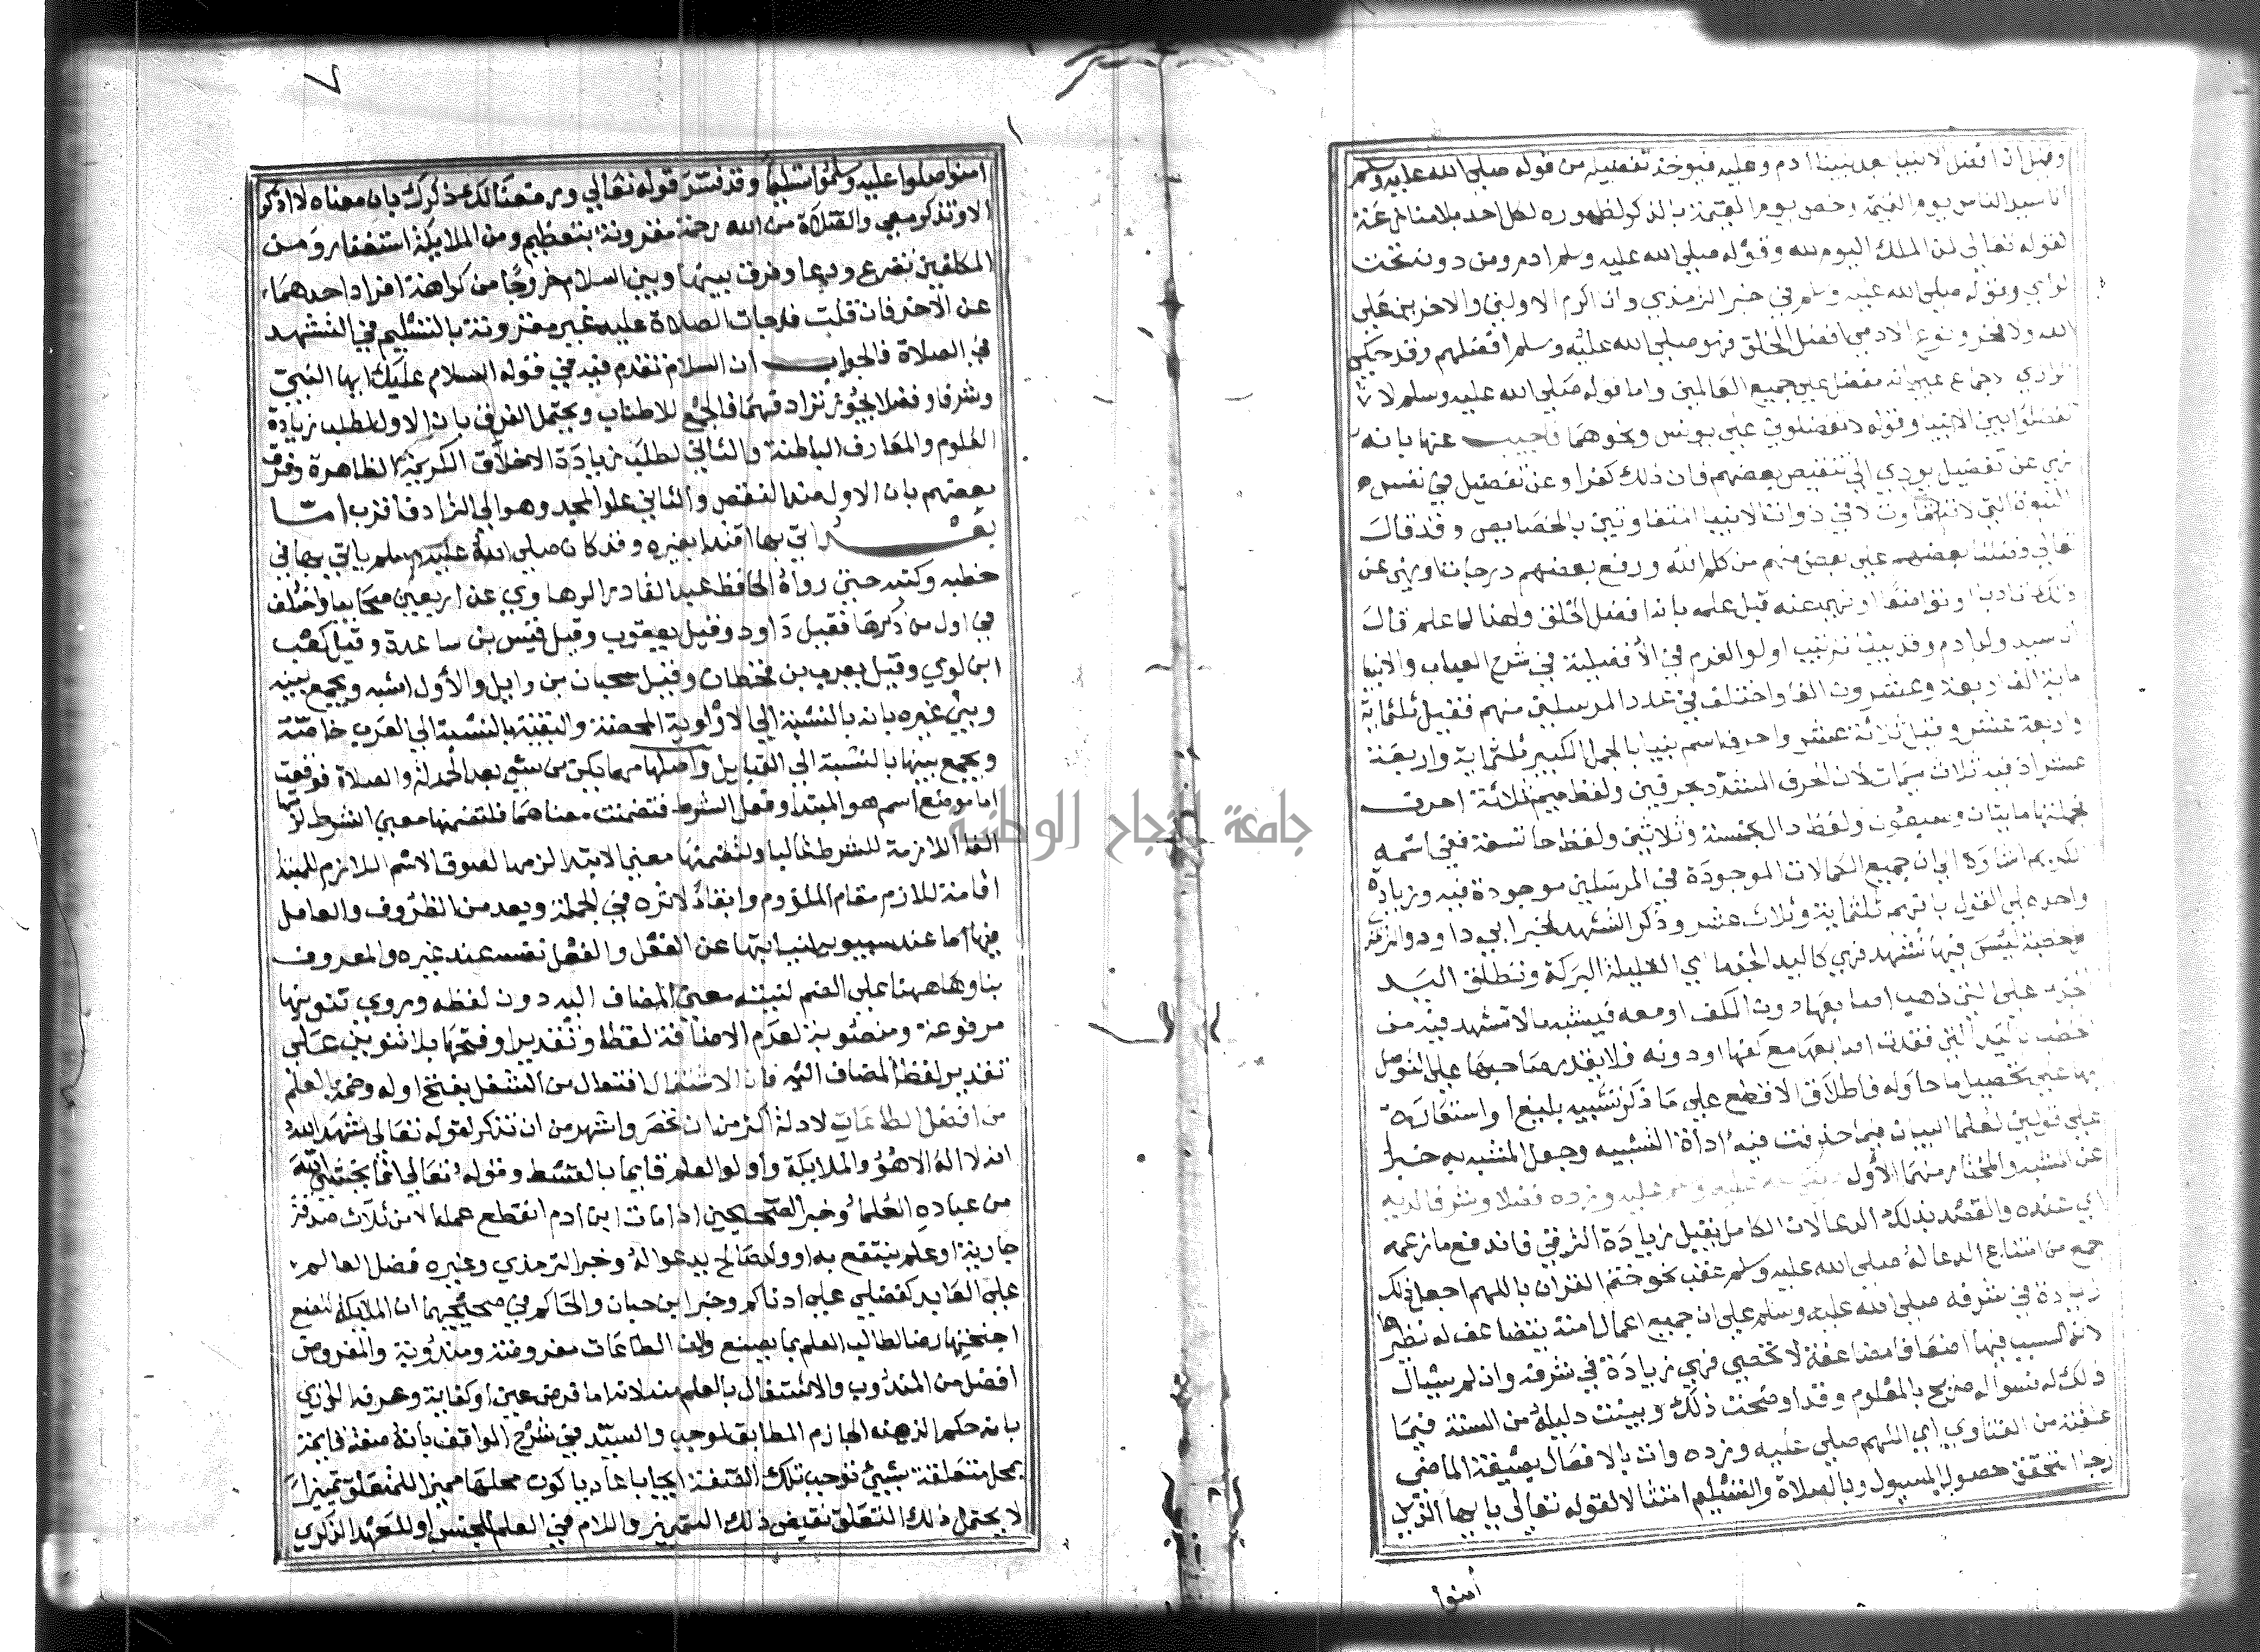 وقيل ان افضل الانبيا بعد نبينا ادم وعليه فيوخذ تفضيله من قوله صلي الله عليه وسلم
انا سيد الناس يوم القيمة وخص يوم القيمة بالذكر لظهوره لكل احد بلا منازعة
لقوله تعالي لمن الملك اليوم لله وقوله صلي الله عليه وسلم ادم ومن دونه تحت
لواي وقوله صلي الله عليه وسلم في خبر الترمذي وانا اكرم الاولين والاخرين علي
الله ولا فخر ونوع الادمي افضل الخلق فهو صلي الله عليه وسلم افضلهم وقد حكي
الرازي الاجماع علي انه مفضل علي جميع العالمين واما قوله صلي الله عليه وسلم لا
تفضلوا بين الانبيا وقوله لا تفضلوني علي يونس ونحوهما فاجيب عنها بانه
نهي عن تفضيل يودي الي تنقيص بعضهم فان ذلك كفر او عن تفضيل في نفس
النبوة التي لا تتفاوت لا في ذوات الانبيا المتفاوتين بالخصايص وقد قال
تعالي فضلنا بعضهم علي بعض منهم من كلم الله ورفع بعضهم درجات او نهي عن
ذلك تادبا وتواضعا او نهي عنه قبل علمه بانه افضل الخلق ولهذا لما علم قال
انا سيد ولد ادم وقد بينت ترتيب اولو العزم في الافضلية في شرح العباب والانبيا
ماية الف اربعة وعشرون الفا واختلف في عدد المرسلين منهم فقيل ثلثماية
واربعة عشر وقيل ثلاثة عشر واحرف اسم نبينا بالجمل الكبير ثلثماية واربعة
عشر اذ فيه ثلاث ميمات لان الحرف المشدد بحرفين ولفظ ميم ثلاثة احرف
فجملتها مايتان وسبعون ولفظ دال بخمسة وثلاثين ولفظ حا تسعة ففي اسمه
الكريم اشارة الي ان جميع الكمالات الموجودة في المرسلين موجودة فيه وزيادة
واحد علي القول بانهم ثلثماية وثلاث عشر وذكر التشهد لخبر ابي داود والترمذي
كل خطبة ليس فيها تشهد فهي كاليد الجذما اي القليلة البركة وتطلق اليد
الجذما علي التي ذهب اصابعها دون الكف او معه فيشبه ما لا تشهد فيه من
الخطب باليد التي فقدت اصابعها مع كفها او دونه فلا يقدر صاحبها علي التوصل
بها علي تحصيل ما حاوله فاطلاق الاقطع علي ما ذكر تشبيه بليغ او استعارة
علي قولين لعلما البيان فيما حذفت فيه اداة التشبيه وجعل المشبه به خبرا
عن المشبه والمختار منهما الاول عليه وزده فضلا وشرفا لديه
اي عنده والقصد بذلك الدعا لان الكامل يقبل زيادة الترقي فاندفع ما زعمه
جمع من امتناع الدعا له صلي الله عليه وسلم عقب نحو ختم القران باللهم اجعل ذلك
زيادة في شرفه صلي الله عليه وسلم علي ان جميع اعمال امته يتضاعف له نظيرها
لانه السبب فيها اضعافا مضاعفة لا تحصي فهي زيادة في شرفه وان لم يسال
ذلك له فسواله صريح بالمعلوم وقد اوضحت ذلك وبينت دليله من السنة فيما
علقته من الفتاوي اي اللهم صلي عليه وزده واتي بالافضال بصيغة الماضي
رجا تحقق حصول المسيول وبالصلاة والتسليم امتثالا لقوله تعالي يا يها الذين
امنوا
٧
امنوا صلوا عليه وسلموا تسليما وقد فسر قوله تعالي ورفعنا لك ذكرك بان معناه لا اذكر
الا وتذكر معي والصلاة من الله رحمة مقرونة بتعظيم ومن الملايكة استغفار ومن
المكلفين تضرع ودعا وقرن بينها وبين السلام خروجا من كراهة افراد احدهما
عن الاخر فان قلت قد جات الصلاة عليه غير مقترونة بالتسليم في التشهد
في الصلاة فالجواب ان السلام تقدم فيه في قوله السلام عليك ايها النبي
وشرفا وفضلا يجوز ترادفهما فالجمع للاطناب ويحتمل الفرق بان الاول لطلب زيادة
العلوم والمعارف الباطنة والثاني لطلب زيادة الاخلاق الكريمة الظاهرة وفرق
بعضهم بان الاول ضد النقص والثاني علو المجد وهو الي الترادف اقرب اما
بعد اتي بها اقتدا بغيره وقد كان صلي الله عليه وسلم ياتي بها في
خطبه وكتبه حتي رواه الحافظ عبد القادر الرهاوي عن اربعين صحابيا واختلف
في اول من ذكرها فقيل داود وقيل يعقوب وقيل قيس بن ساعدة وقيل كعب
ابن لوي وقيل يعرب بن قحطان وقيل سحبان بن وايل والاول اشبه ويجمع بينه
وبين غيره بانه بالنسبة الي الاولوية المحضة والبقية بالنسبة الي العرب خاصة
ويجمع بينها بالنسبة الي القبايل واصلها مهما يكن من شي بعد الحمدلة والصلاة فوقعت
اما موضع اسم هو المبتدا وفعل الشرط فتضمنت معناهما فلتضمنها معني الشرط لزمتها
الفا اللازمة للشرط غالبا ولتضمنها معني الابتدا لزمها لصوق الاسم اللازم للمبتدا
اقامة للازم مقام الملزوم وابقاء لاثره في الجملة وبعد من الظروف والعامل
فيها اما عند سيبويه لنيابتها عن الفعل والفعل نفسه عند غيره والمعروف
بناوها هنا علي الضم لنيته معني المضاف اليه دون لفظه وروي تنوينها
مرفوعة ومنصوبة لعدم الاضافة لفظا وتقديرا وفتحها بلا تنوين علي
تقدير لفظ المضاف اليه فان الاشتغال افتعال من الشغل بفتح اوله وضمه بالعلم
من افضل الطاعات لادلة اكثر من ان تحصر واشهر من ان تذكر لقوله تعالي شهد الله
انه لا اله الا هو والملايكة واولو العلم قايما بالقسط وقوله تعالي انما يخشي الله
من عباده العلما وخبر الصحيحين اذا مات ابن ادم انقطع عمله الا من ثلاث صدقة
جارية او علم ينتفع به او ولد صالح يدعو له وخبر الترمذي وغيره فضل العالم
علي العابد كفضلي علي ادناكم وخبر ابن حبان والحاكم في صحيحيهما ان الملايكة لتضع
اجنحتها رضا لطالب العلم بما يصنع ولان الطاعات مفروضة ومندوبة والمفروض
افضل من المندوب والاشتغال بالعلم منه لانه اما فرض عين او كفاية وعرفه الرازي
بانه حكم الذهن الجازم المطابق لموجب والسيد في شرح المواقف بانه صفة قايمة
بمحل متعلقة بشيئ توجب تلك الصفة ايجابا عاديا كون محلها مميزا للمتعلق تميزا
لا يحتمل ذلك التعلق نقيض ذلك التميز واللام في العلم للجنس او للعهد الذكري
جامعة النجاح الوطنية